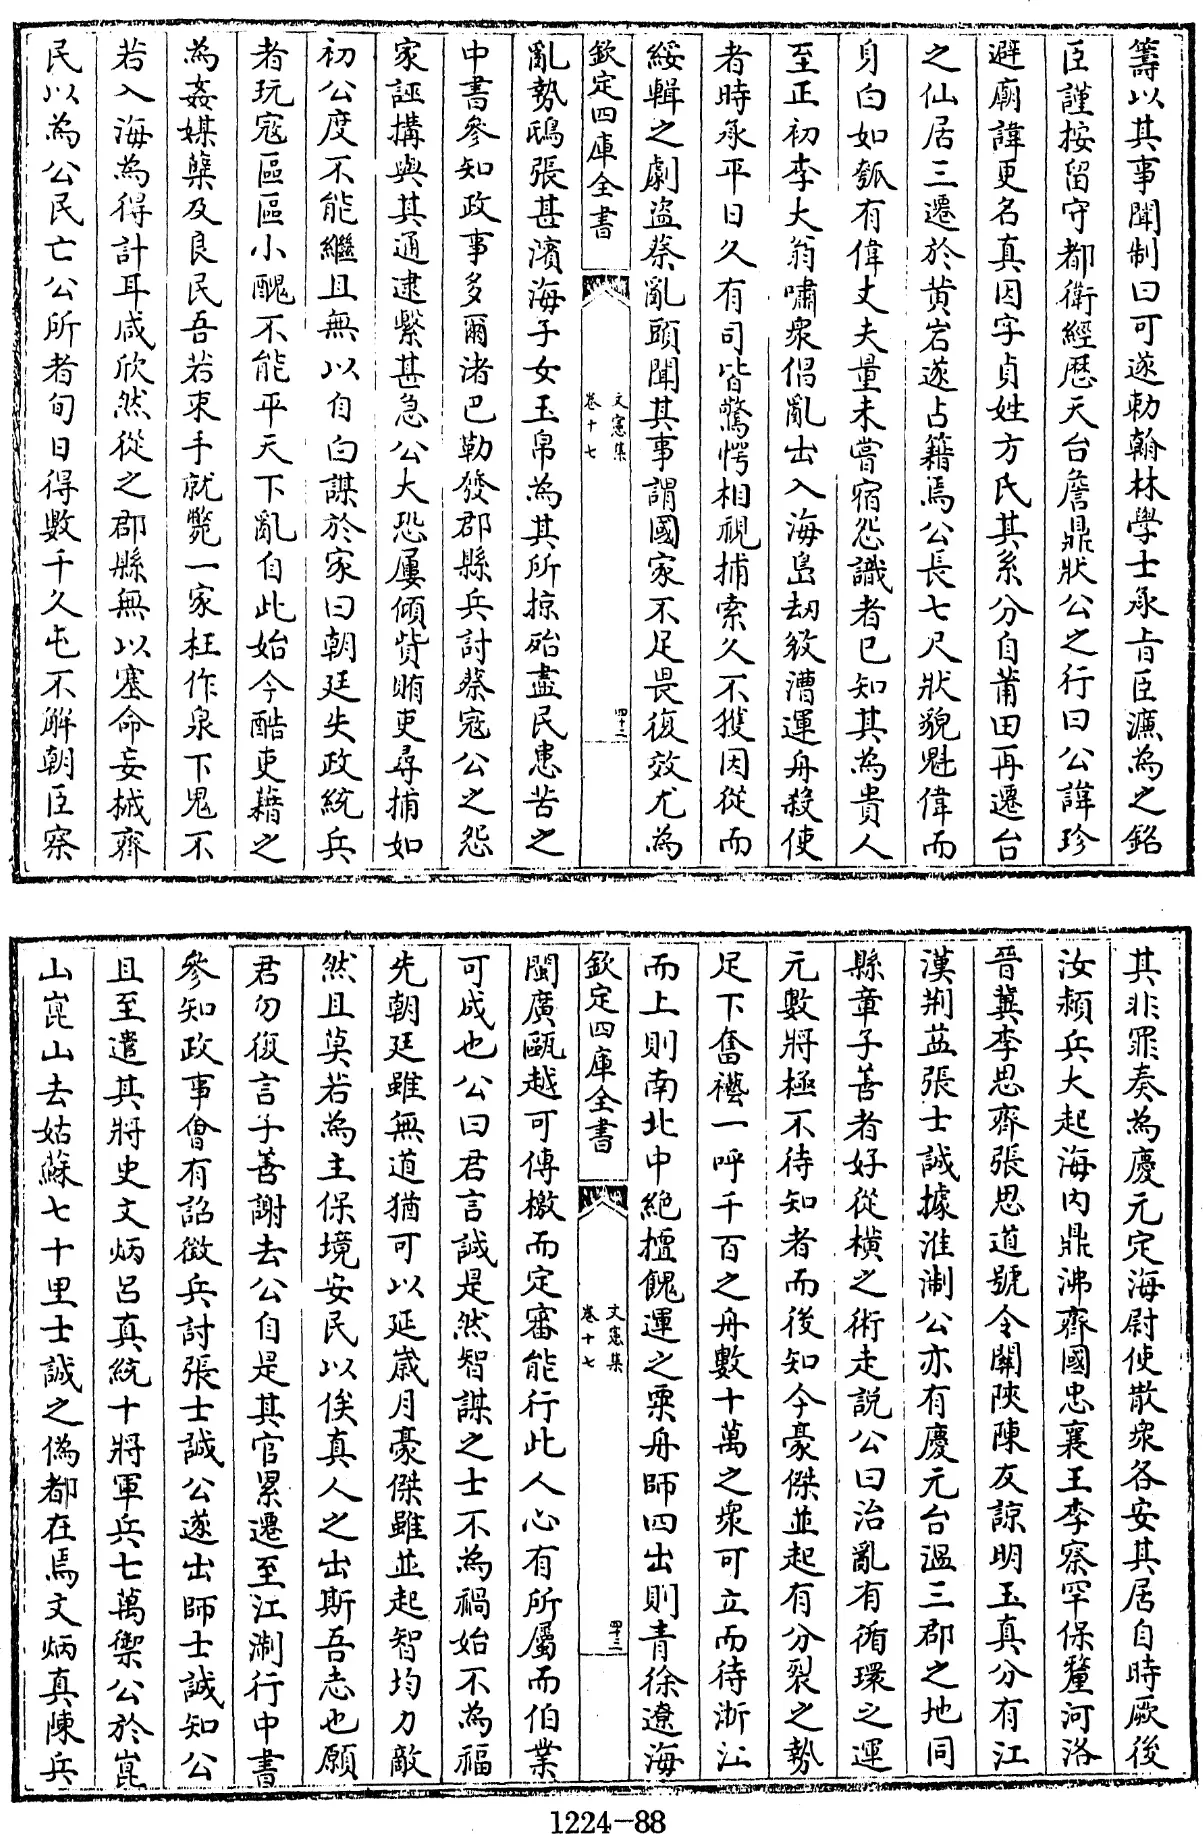 籌以其事聞制曰可遂勅翰林學士承旨臣濂為之銘
臣謹按留守都衛經歷天台詹鼎狀公之行曰公諱珍
避廟諱更名真因字貞姓方氏其系分自莆田再遷台
之仙居三遷於黄岩遂占籍焉公長七尺狀貌魁偉而
身白如瓠有偉丈夫量未嘗宿怨識者已知其為貴人
至正初李大翁嘯衆倡亂出入海島刼殺漕運舟殺使
者時承平日久有司皆驚愕相視捕索久不獲因從而
綏輯之劇盗蔡亂頭聞其事謂國家不足畏復效尤為
欽定四庫全書
文憲集
卷十七
四十二
亂勢鴟張甚濱海子女玉帛為其所掠殆盡民患苦之
中書參知政事多爾渚巴勒發郡縣兵討蔡寇公之怨
家誣搆與其通逮繫甚急公大恐屢傾貲賄吏尋捕如
初公度不能繼且無以自白謀於家曰朝廷失政統兵
者玩寇區區小醜不能平天下亂自此始今酷吏藉之
為姦媒糵及良民吾若束手就斃一家枉作泉下鬼不
若入海為得計耳咸欣然從之郡縣無以塞命妄械齊
民以為公民亡公所者旬日得數千久屯不解朝臣察
其非罪奏為慶元定海尉使散衆各安其居自時厥後
汝潁兵大起海内鼎沸齊國忠襄王李察罕保釐河洛
晉冀李思齊張思道號令闗陜陳友諒明玉真分有江
漢荆益張士誠據淮淛公亦有慶元台温三郡之地同
縣章子善者好從横之術走説公曰治亂有循環之運
元數將極不待知者而後知今豪傑並起有分裂之勢
足下奮襼一呼千百之舟數十萬之衆可立而待浙江
而上則南北中絶擅餽運之粟舟師四出則青徐遼海
欽定四庫全書
文憲集
卷十七
四十三
閩廣甌越可傳檄而定審能行此人心有所屬而伯業
可成也公曰君言誠是然智謀之士不為禍始不為福
先朝廷雖無道猶可以延嵗月豪傑雖並起智均力敵
然且莫若為主保境安民以俟真人之出斯吾志也願
君勿復言子善謝去公自是其官累遷至江淛行中書
參知政事㑹有詔徵兵討張士誠公遂出師士誠知公
且至遣其將史文炳吕真統十將軍兵七萬禦公於崑
山崑山去姑蘇七十里士誠之偽都在焉文炳真陳兵
1224-88